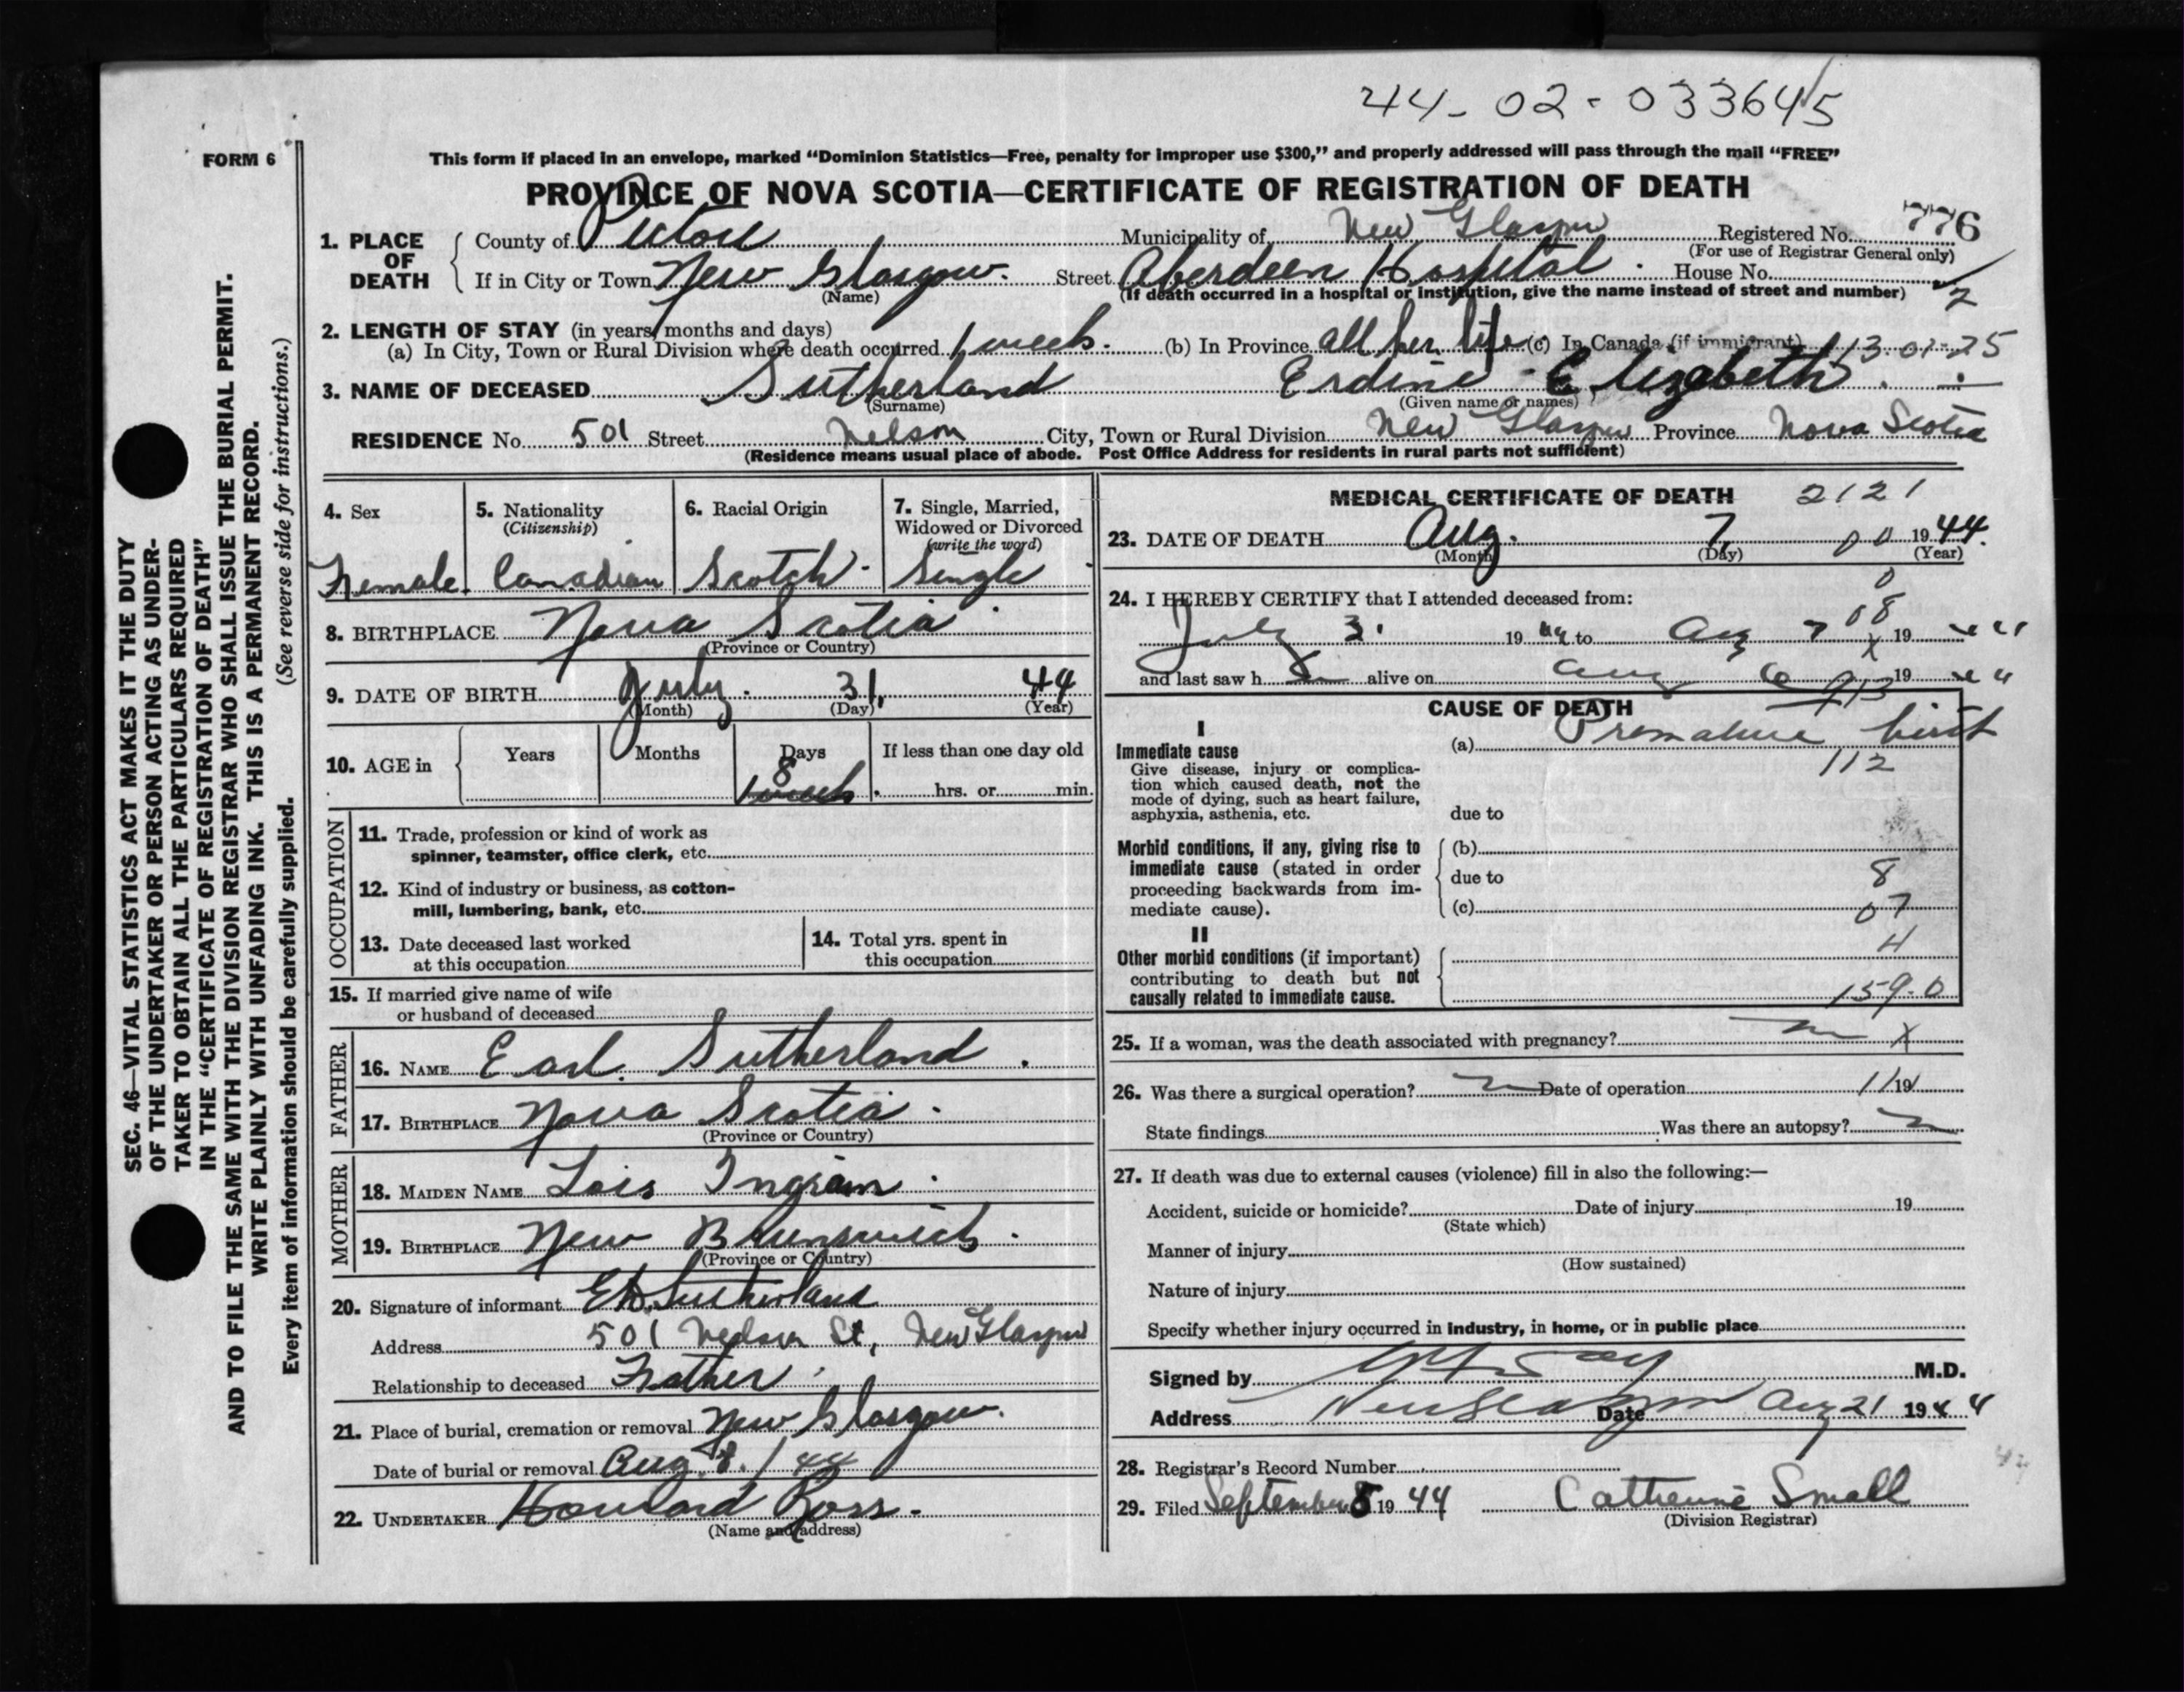 44-02-033645
FORM 6
This form if placed in an envelope, marked “Dominion Statistics—Free, penalty for improper use $300,” and properly addressed will pass through the mail “FREE”
PROVINCE OF NOVA SCOTIA—CERTIFICATE OF REGISTRATION OF DEATH
1. PLACE OF DEATH County of Pictou Municipality of New Glasgow Registered No. 776
(For use of Registrar General only)
If in City or Town New Glasgow. Street Aberdeen Hospital. House No.
(Name) (If death occurred in a hospital or institution, give the name instead of street and number) 2
2. LENGTH OF STAY (in years, months and days)
(a) In City, Town or Rural Division where death occurred 1 week. (b) In Province all her life (c) In Canada (if immigrant) 13-01-25
3. NAME OF DECEASED Sutherland Erdine Elizabeth
(Surname) (Given name or names)
RESIDENCE No. 501 Street Nelson City, Town or Rural Division New Glasgow Province Nova Scotia
(Residence means usual place of abode. Post Office Address for residents in rural parts not sufficient)
4. Sex 5. Nationality (Citizenship) 6. Racial Origin 7. Single, Married, Widowed or Divorced (write the word)
Female Canadian Scotch Single
8. BIRTHPLACE Nova Scotia
(Province or Country)
9. DATE OF BIRTH July. 31, 44
(Month) (Day) (Year)
10. AGE in Years Months Days If less than one day old
8
1 week. hrs. or min.
OCCUPATION
11. Trade, profession or kind of work as
spinner, teamster, office clerk, etc.
12. Kind of industry or business, as cotton-
mill, lumbering, bank, etc.
13. Date deceased last worked
at this occupation
14. Total yrs. spent in
this occupation
15. If married give name of wife
or husband of deceased
FATHER
16. NAME Earl Sutherland.
17. BIRTHPLACE Nova Scotia.
(Province or Country)
MOTHER
18. MAIDEN NAME Lois Ingram.
19. BIRTHPLACE New Brunswick.
(Province or Country)
20. Signature of informant Sutherland
Address 501 Nelson St, New Glasgow
Relationship to deceased Father
21. Place of burial, cremation or removal New Glasgow.
Date of burial or removal Aug. 8. / 44
22. UNDERTAKER Howard Ross.
(Name and address)
MEDICAL CERTIFICATE OF DEATH 2121
23. DATE OF DEATH Aug. 7, 00 1944.
(Month) (Day) (Year)
24. I HEREBY CERTIFY that I attended deceased from:
0
08
July 31 1944 to Aug 7 1944
and last saw h alive on Aug 6 1944
913
CAUSE OF DEATH
I
Immediate cause (a) Premature birth
112
Give disease, injury or complica-
tion which caused death, not the
mode of dying, such as heart failure,
asphyxia, asthenia, etc. due to
Morbid conditions, if any, giving rise to (b)
immediate cause (stated in order due to 8
proceeding backwards from im-
mediate cause). (c) 07
II 4
Other morbid conditions (if important)
contributing to death but not
causally related to immediate cause. 159.0
25. If a woman, was the death associated with pregnancy? X
26. Was there a surgical operation? Date of operation 19
State findings Was there an autopsy?
27. If death was due to external causes (violence) fill in also the following:—
Accident, suicide or homicide? Date of injury 19
(State which)
Manner of injury
(How sustained)
Nature of injury
Specify whether injury occurred in industry, in home, or in public place
Signed by M.D.
Address New Glasgow Date Aug 21 1944
28. Registrar's Record Number
29. Filed September 8 1944 Catherine Small
(Division Registrar)
SEC. 46—VITAL STATISTICS ACT MAKES IT THE DUTY
OF THE UNDERTAKER OR PERSON ACTING AS UNDER-
TAKER TO OBTAIN ALL THE PARTICULARS REQUIRED
IN THE “CERTIFICATE OF REGISTRATION OF DEATH”
AND TO FILE THE SAME WITH THE DIVISION REGISTRAR WHO SHALL ISSUE THE BURIAL PERMIT.
WRITE PLAINLY WITH UNFADING INK. THIS IS A PERMANENT RECORD.
Every item of information should be carefully supplied. (See reverse side for instructions.)